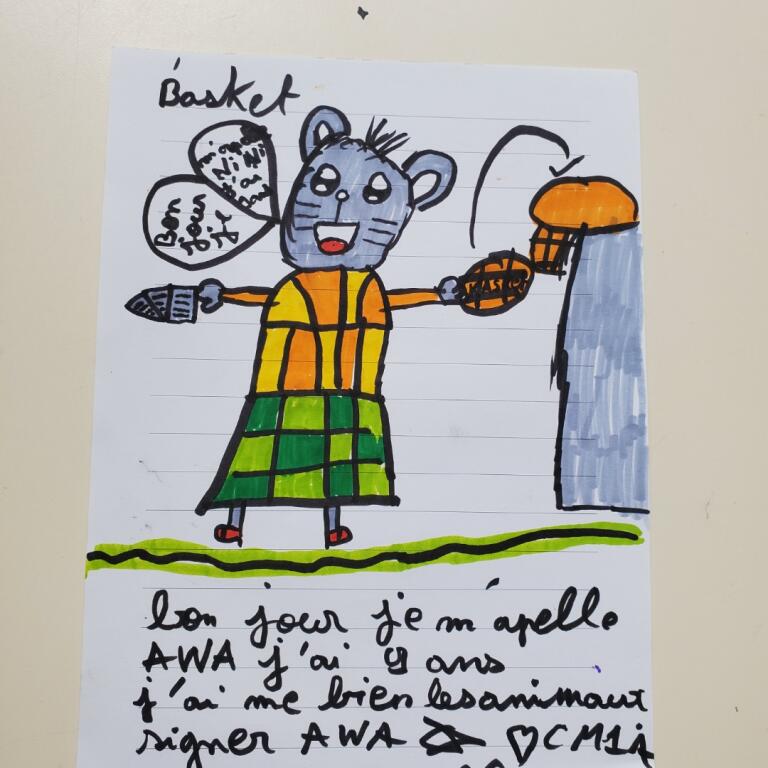 Basket
Ni Ni
Bon
jour
je
bon jour je m'apelle
AWA j'ai 9 ans
j'ai me bien lesanimaux
signer AWA ♡CM1A